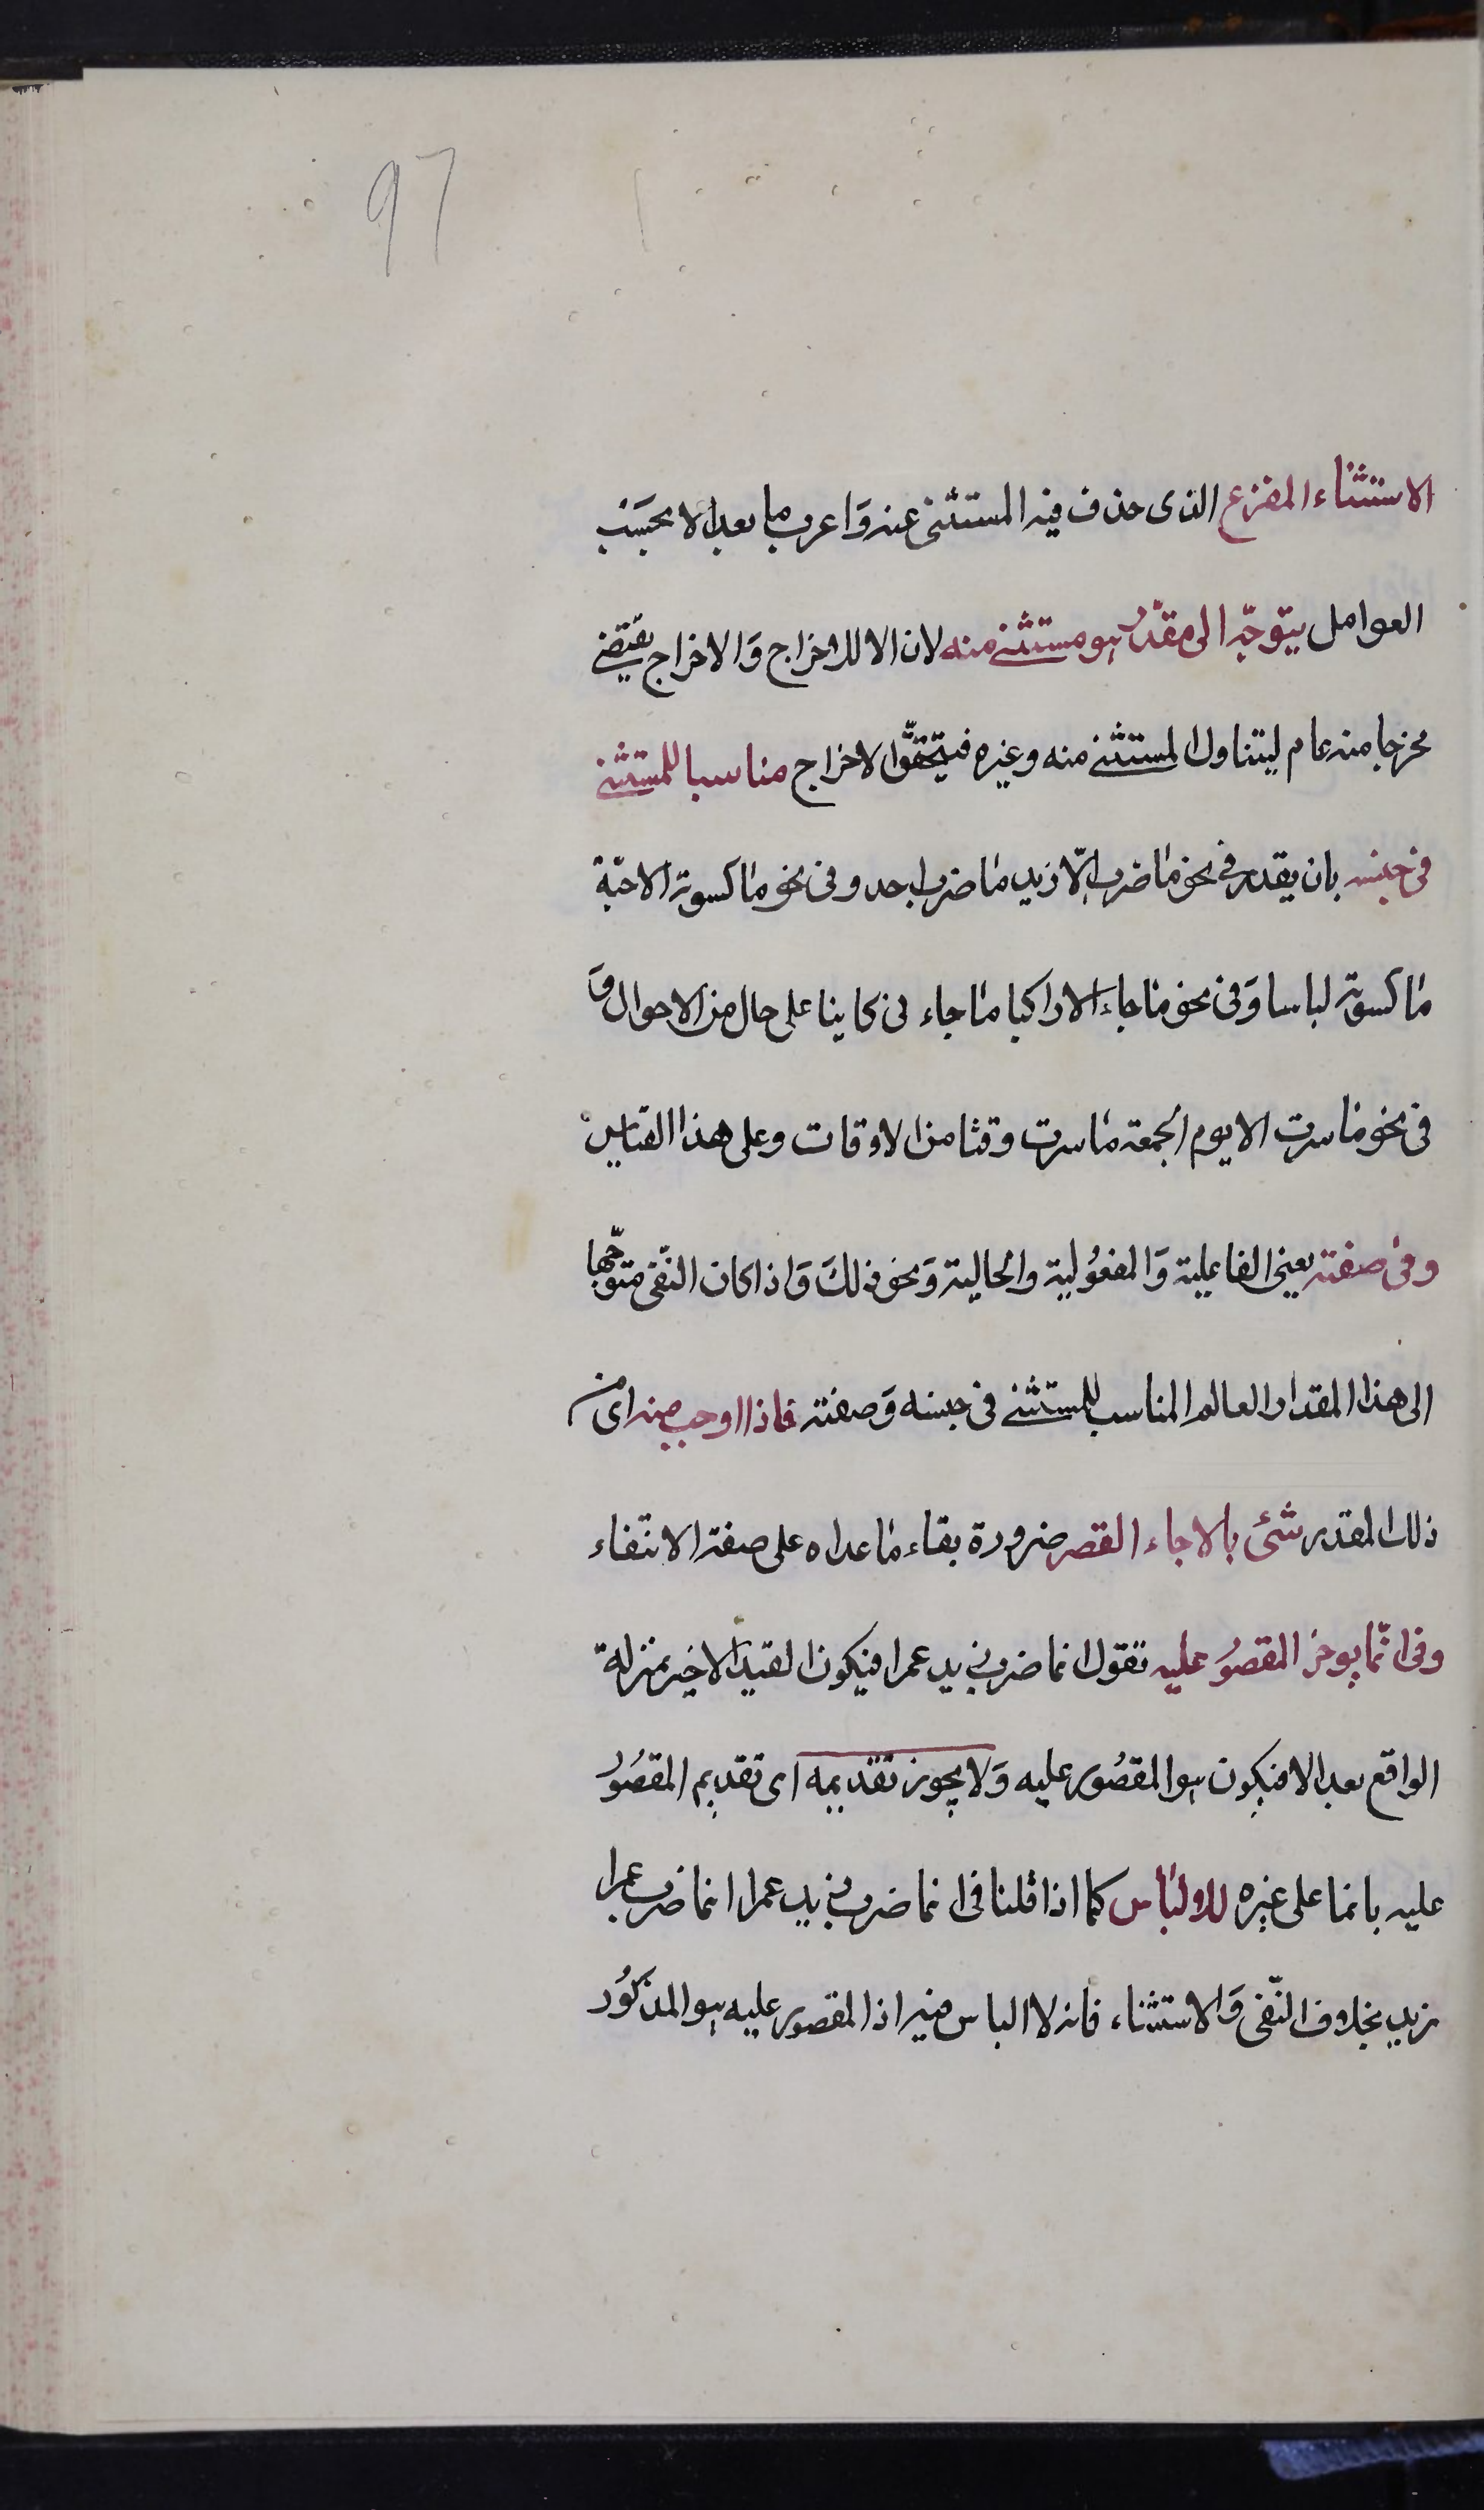 97
الاستثناء المفرغ الذى حذف فيه المستثنى عنه وَاعرب ما بعد الا بحسَب
العوامل يتوجّه الى مقدّر هو مستثنى منه لان الا للاخراج وَالاخراج يقتضى
مخرجا منه عام ليتناول المستثنى منه وغيره فيتحقّق الاخراج مناسبا للمستثنى
فى جنسه بان يقدر فى نحو ما ضرب الّا زيد ما ضرب احد وفى نحو ما كسوته الا جبّة
ما كسوته لباسا وَفى نحو ما جاء الا راكبا ما جاء فى كاينا على حال من الاحوال وَ
فى نحو ما سرت الا يوم الجمعة ما سرت وقتا من الاوقات وعلى هذا القياس
وفى صفته يعنى الفاعلية وَالمفعُولية والحالية وَنحو ذلكَ وَاذا كان النّفى متوجّها
الى هذا المقدار العالم المناسب للمستثنى فى جنسه وَصفته فاذا اوجب منه اى من
ذلك المقدر شئ بالا جاء القصر ضرورة بقاء ما عداه على صفة الانتفاء
وفى انّما يوخر المقصُور عليه تقول انما ضرب زيد عمرا فيكون القيد الاخير بمنزلة
الواقع بعد الا فيكون هو المقصُور عليه وَلا يجوز تقديمه اى تقديم المقصُورُ
عليه بانما على غيره للالباس كما اذا قلنا فى انما ضرب زيد عمرا انما ضرب عمرا
زيد بخلاف النّفى وَالاستثناء فانه لا الباس فيه اذ المقصور عليه هو المذكُور